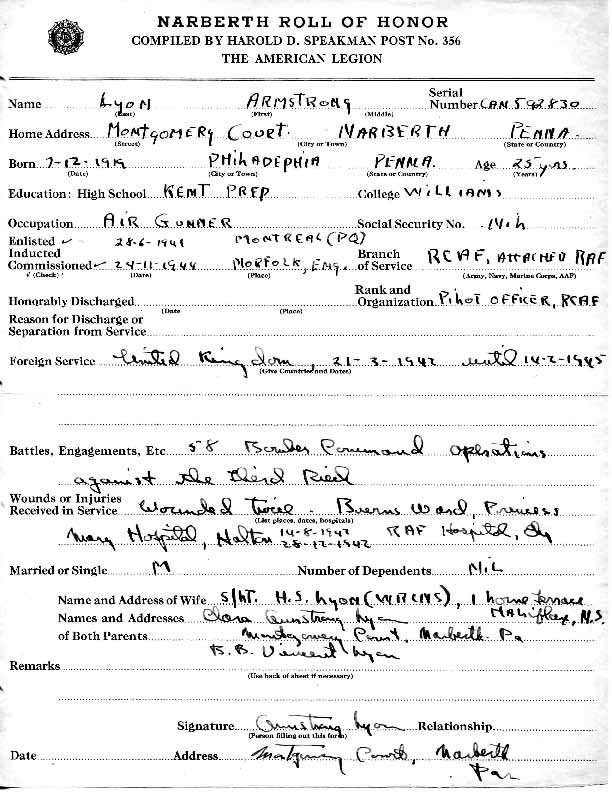 NARBERTH ROLL OF HONOR
COMPILED BY HAROLD D. SPEAKMAN POST No. 356
THE AMERICAN LEGION
Name Lyon ARMSTRONG Serial Number CAN 592830
(Last) (First) (Middle)
Home Address MONTGOMERY COURT. NARBERTH PENNA.
(Street) (City or Town) (State or Country)
Born 7-12-1919 PHILADELPHIA PENNA. Age 25 yrs.
(Date) (City or Town) (State or Country) (Years)
Education: High School KENT PREP College WILLIAMS
Occupation AIR GUNNER Social Security No. Nil
Enlisted ✓ 28-6-1941 MONTREAL (PQ)
Inducted
Commissioned ✓ 24-11-1944 NORFOLK, ENG. Branch of Service RCAF, ATTACHED RAF
✓ (Check) (Date) (Place) (Army, Navy, Marine Corps, AAF)
Honorably Discharged Rank and Organization PILOT OFFICER, RCAF
(Date (Place)
Reason for Discharge or
Separation from Service
Foreign Service United Kingdom, 21-3-1942 until 14-2-1945
(Give Countries and Dates)
Battles, Engagements, Etc 58 Bomber Command operations
against the Third Reich
Wounds or Injuries
Received in Service Wounded twice - Burns Ward, Princess
(List places, dates, hospitals)
Mary Hospital, Halton 14-8-1942 RAF Hospital, Ely
28-12-1942
Married or Single M Number of Dependents NIL
Name and Address of Wife S/LT. H.S. LYON (WRCNS), 1 horne terrace
HALIFAX, N.S.
Names and Addresses of Both Parents Clara Armstrong Lyon
Montgomery Court, Narberth Pa
B.B. Vincent Lyon
Remarks
(Use back of sheet if necessary)
Signature Armstrong Lyon Relationship
(Person filling out this form)
Date Address Montgomery Court, Narberth
Pa